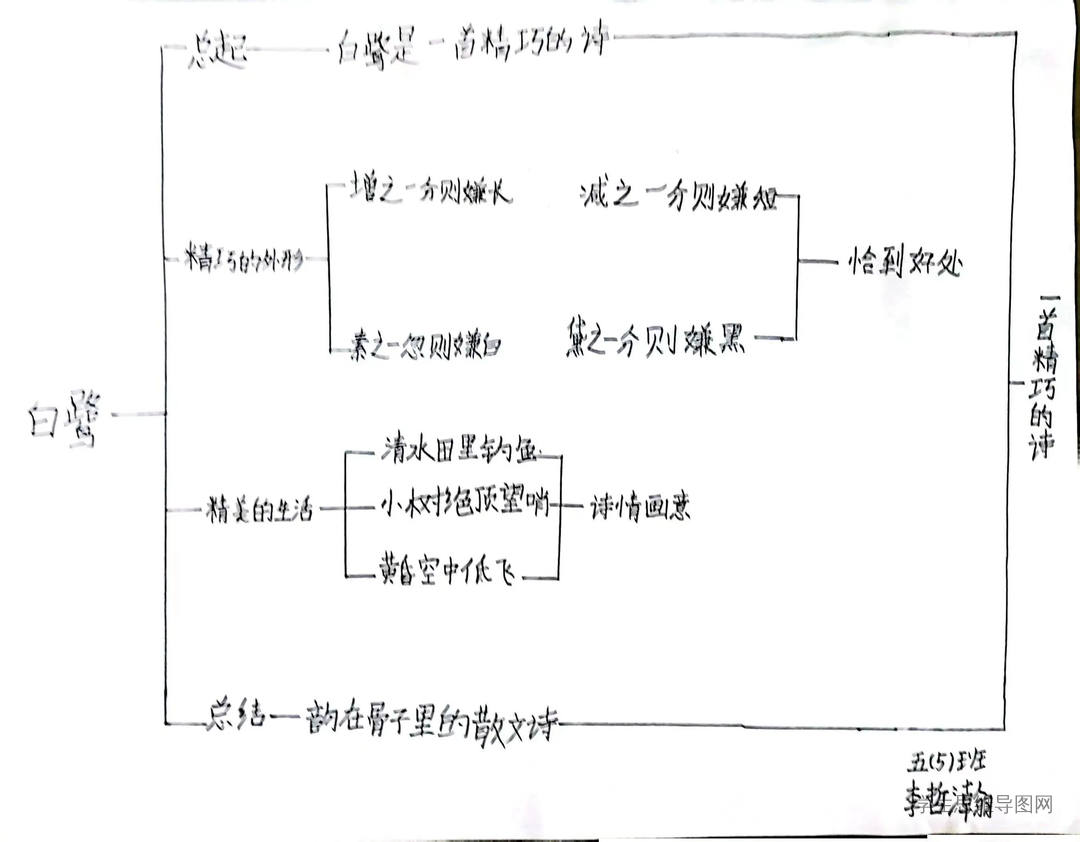 总起
白鹭是一首精巧的诗
增之一分则嫌长
减之一分则嫌短
精巧的外形
恰到好处
素之一忽则嫌白
黛之一分则嫌黑
一首精巧的诗
白鹭
清水田里钓鱼
精美的生活
小树绝顶望哨
诗情画意
黄昏空中低飞
总结
韵在骨子里的散文诗
五(5)班
李哲瀚
导图网